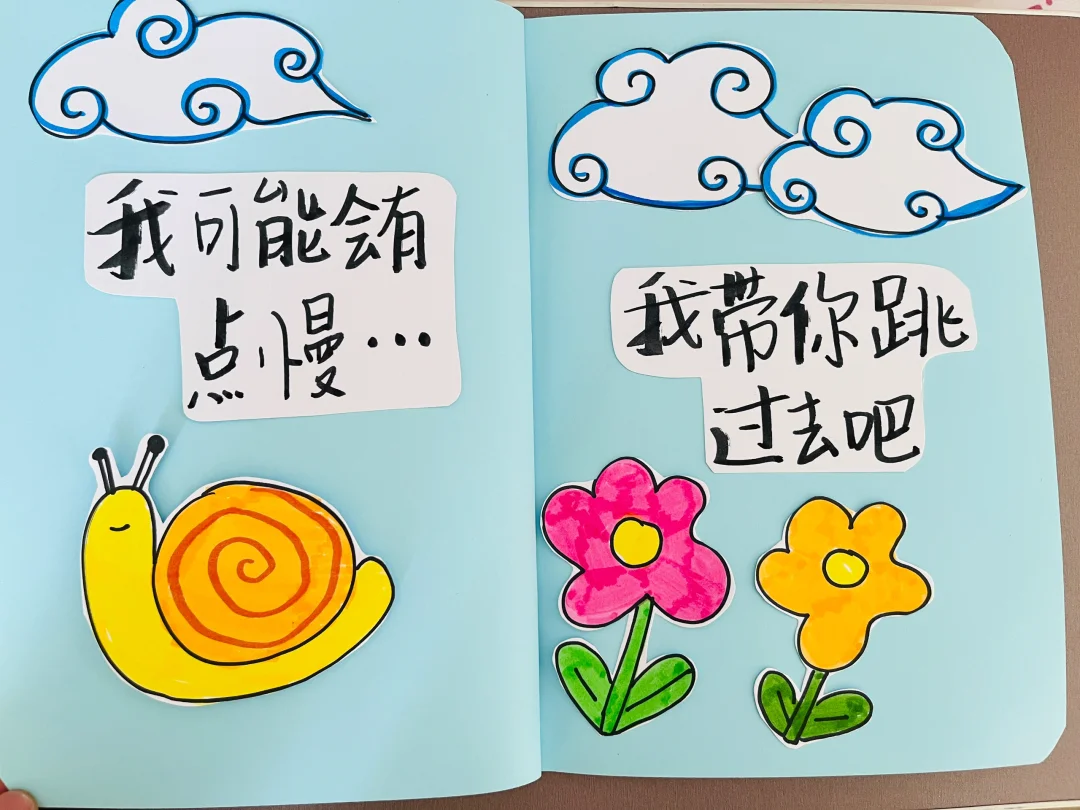 我可能会有
点慢…
我带你跳
过去吧